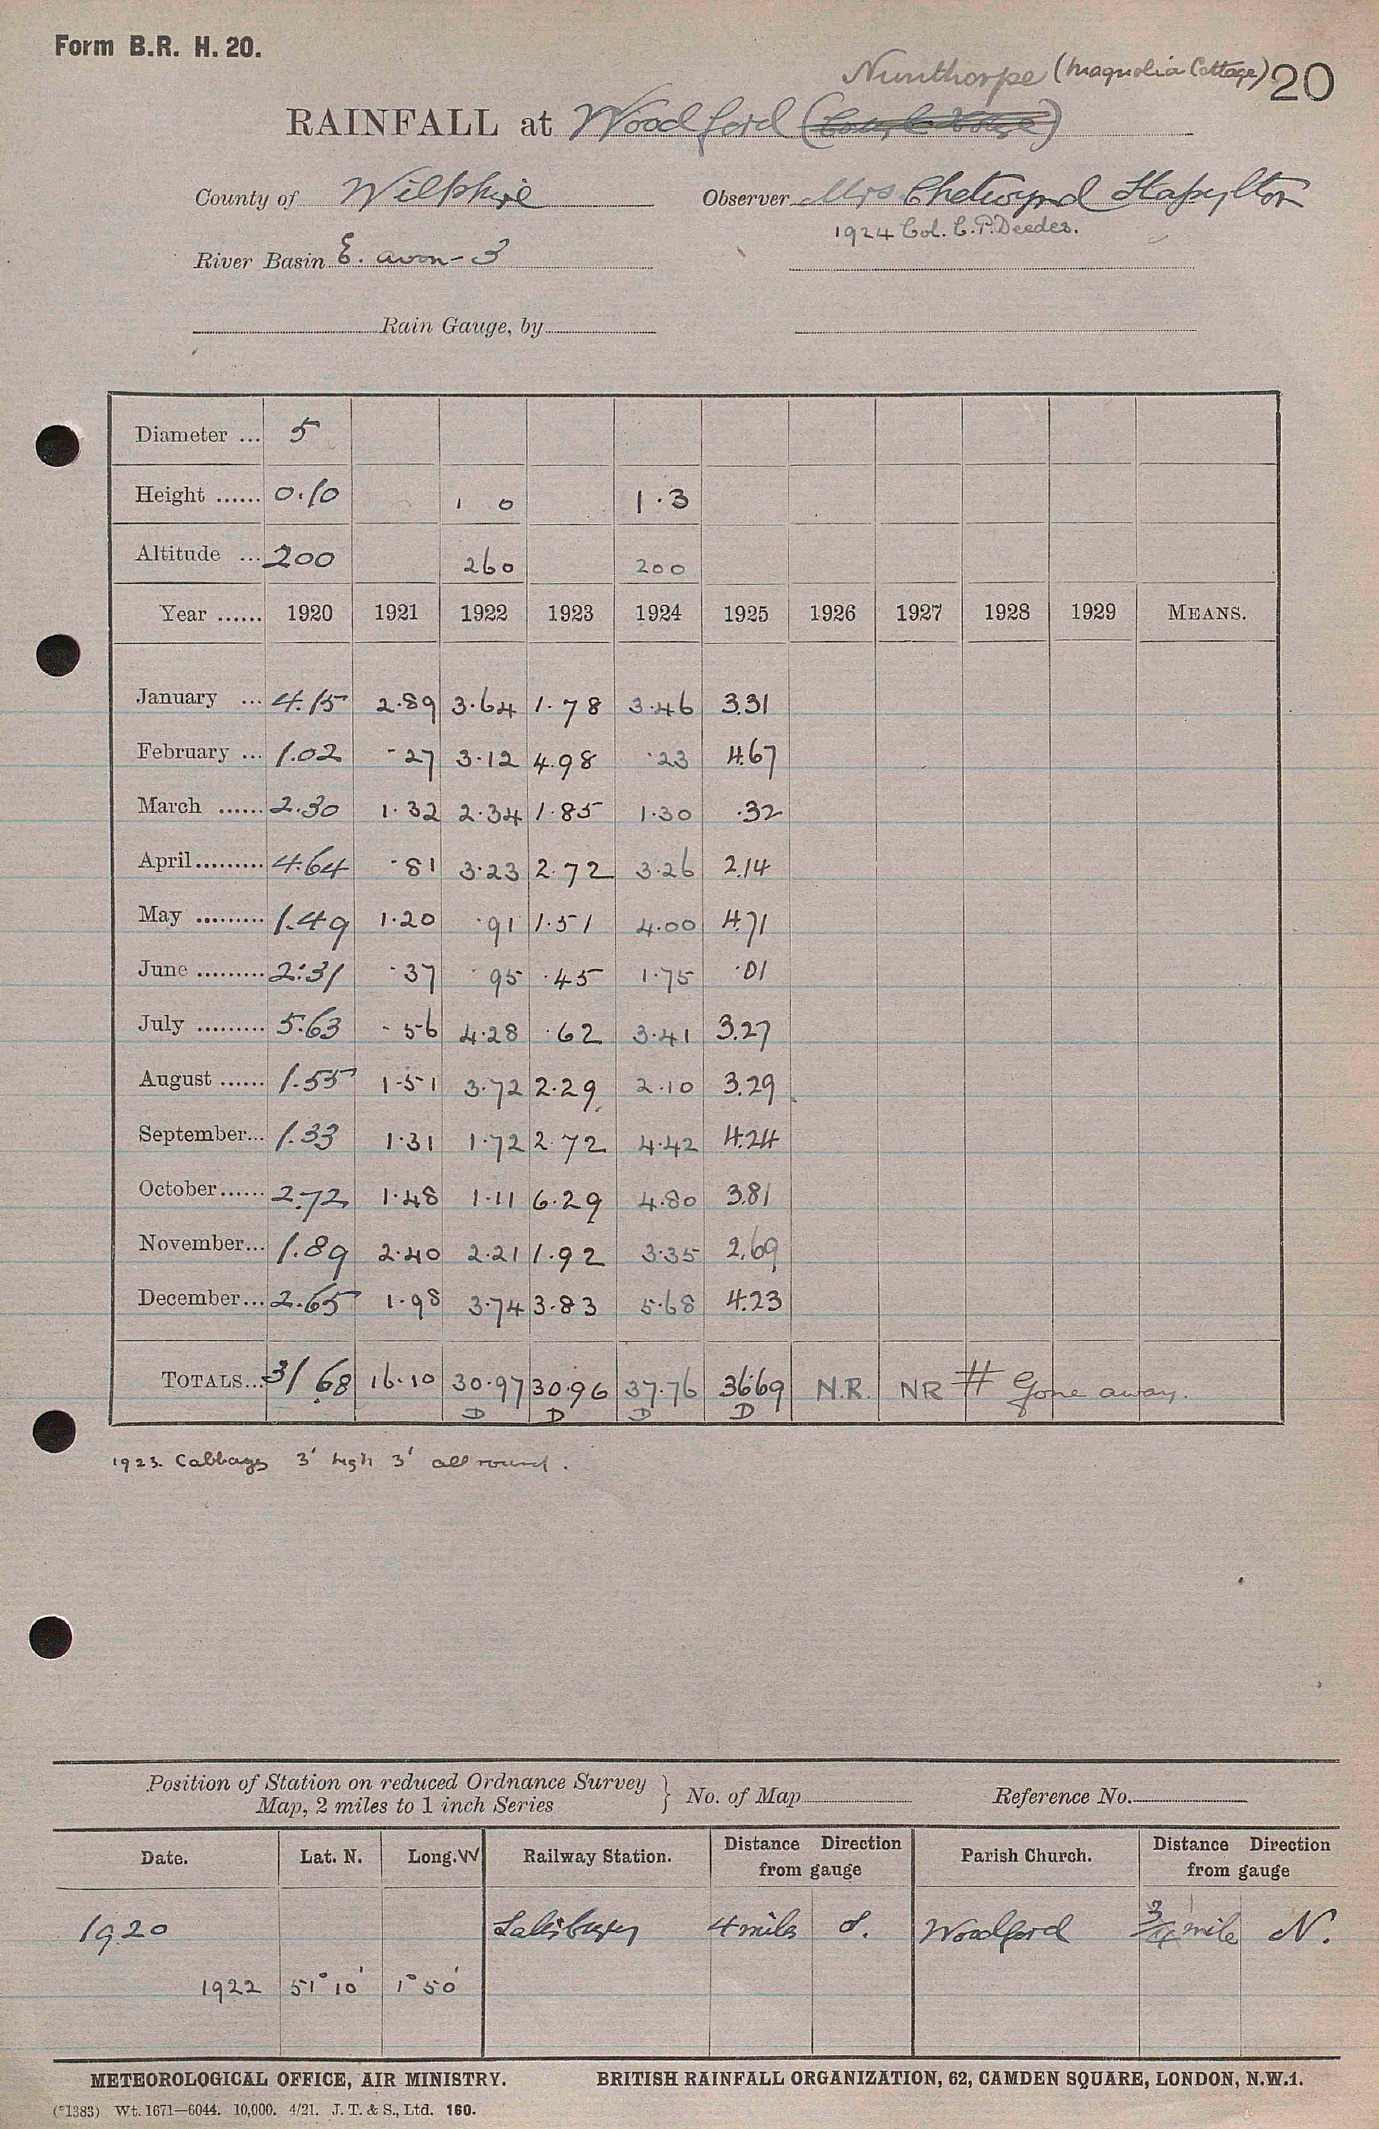 Form B.R. H. 20.
Nunthorpe (Magnolia Cottage) 20
RAINFALL at Woodford
County of Wiltshire Observer Mrs Chetwynd Stapylton
1924 Col. C. P. Deedes.
River Basin E. Avon - 3
Rain Gauge, by
Diameter ... 5
Height ...... 0.10 1 0 1.3
Altitude ... 200 260 200
Year ...... 1920 1921 1922 1923 1924 1925 1926 1927 1928 1929 MEANS.
January ... 4.15 2.89 3.64 1.78 3.46 3.31
February ... 1.02 .27 3.12 4.98 .23 4.67
March ...... 2.30 1.32 2.34 1.85 1.30 .32
April......... 4.64 .81 3.23 2.72 3.26 2.14
May ......... 1.49 1.20 .91 1.51 4.00 4.71
June ......... 2.31 .37 .95 .45 1.75 .01
July ......... 5.63 .56 4.28 .62 3.41 3.27
August ...... 1.55 1.51 3.72 2.29 2.10 3.29
September... 1.33 1.31 1.72 2.72 4.42 4.24
October...... 2.72 1.48 1.11 6.29 4.80 3.81
November... 1.89 2.40 2.21 1.92 3.35 2.69
December... 2.65 1.98 3.74 3.83 5.68 4.23
TOTALS... 31 68 16.10 30.97 30.96 37.76 36.69 N.R. NR # Gone away.
D D D D
1923. Cabbages 3' high 3' all round.
Position of Station on reduced Ordnance Survey
Map, 2 miles to 1 inch Series } No. of Map Reference No.
Date. Lat. N. Long. W Railway Station. Distance Direction from gauge Parish Church. Distance Direction from gauge
1920 Salisbury 4 miles S. Woodford 3/4 mile N.
1922 51° 10' 1° 50'
METEOROLOGICAL OFFICE, AIR MINISTRY. BRITISH RAINFALL ORGANIZATION, 62, CAMDEN SQUARE, LONDON, N.W.1.
(*1383) Wt. 1671—6044. 10,000. 4/21. J. T. & S., Ltd. 160.